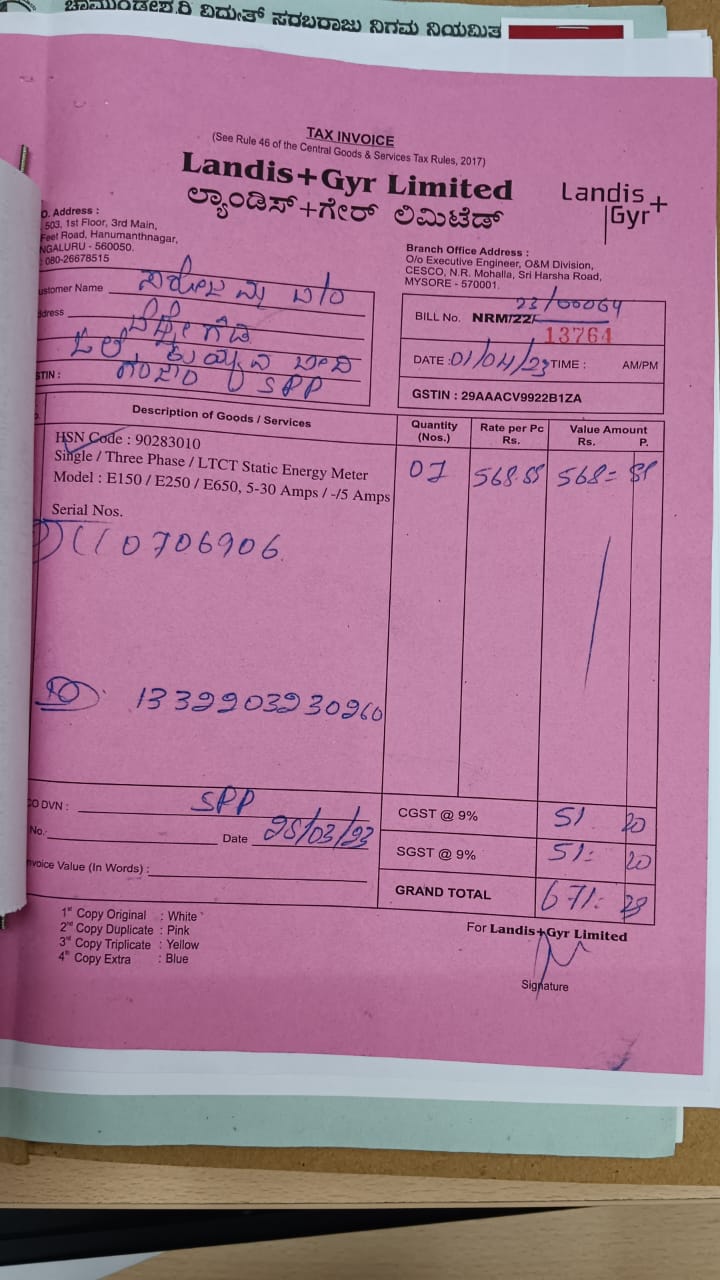 ಚಾಮುಂಡೇಶ್ವರಿ ವಿದ್ಯುತ್ ಸರಬರಾಜು ನಿಗಮ ನಿಯಮಿತ
TAX INVOICE
(See Rule 46 of the Central Goods & Services Tax Rules, 2017)
Landis+Gyr Limited
ಲ್ಯಾಂಡಿಸ್+ಗೇರ್ ಲಿಮಿಟೆಡ್
Landis+
Gyr
O. Address :
503, 1st Floor, 3rd Main,
Feet Road, Hanumanthnagar,
NGALURU - 560050.
080-26678515
Branch Office Address :
O/o Executive Engineer, O&M Division,
CESCO, N.R. Mohalla, Sri Harsha Road,
MYSORE - 570001.
ustomer Name
ddress
STIN : ಗಂಜಾಂ SPP
23/00064
BILL No. NRM/22/ 13764
DATE : 01/04/23 TIME : AM/PM
GSTIN : 29AAACV9922B1ZA
Description of Goods / Services Quantity (Nos.) Rate per Pc Rs. Value Amount Rs. P.
HSN Code : 90283010
Single / Three Phase / LTCT Static Energy Meter 01 568.88 568=
Model : E150 / E250 / E650, 5-30 Amps / -/5 Amps
Serial Nos.
10706906
1339903930960
CO DVN : SPP
No. Date 25/03/23
nvoice Value (In Words) :
CGST @ 9% 51 20
SGST @ 9% 51 20
GRAND TOTAL 671
1st Copy Original : White
2nd Copy Duplicate : Pink
3rd Copy Triplicate : Yellow
4th Copy Extra : Blue
For Landis+Gyr Limited
Signature